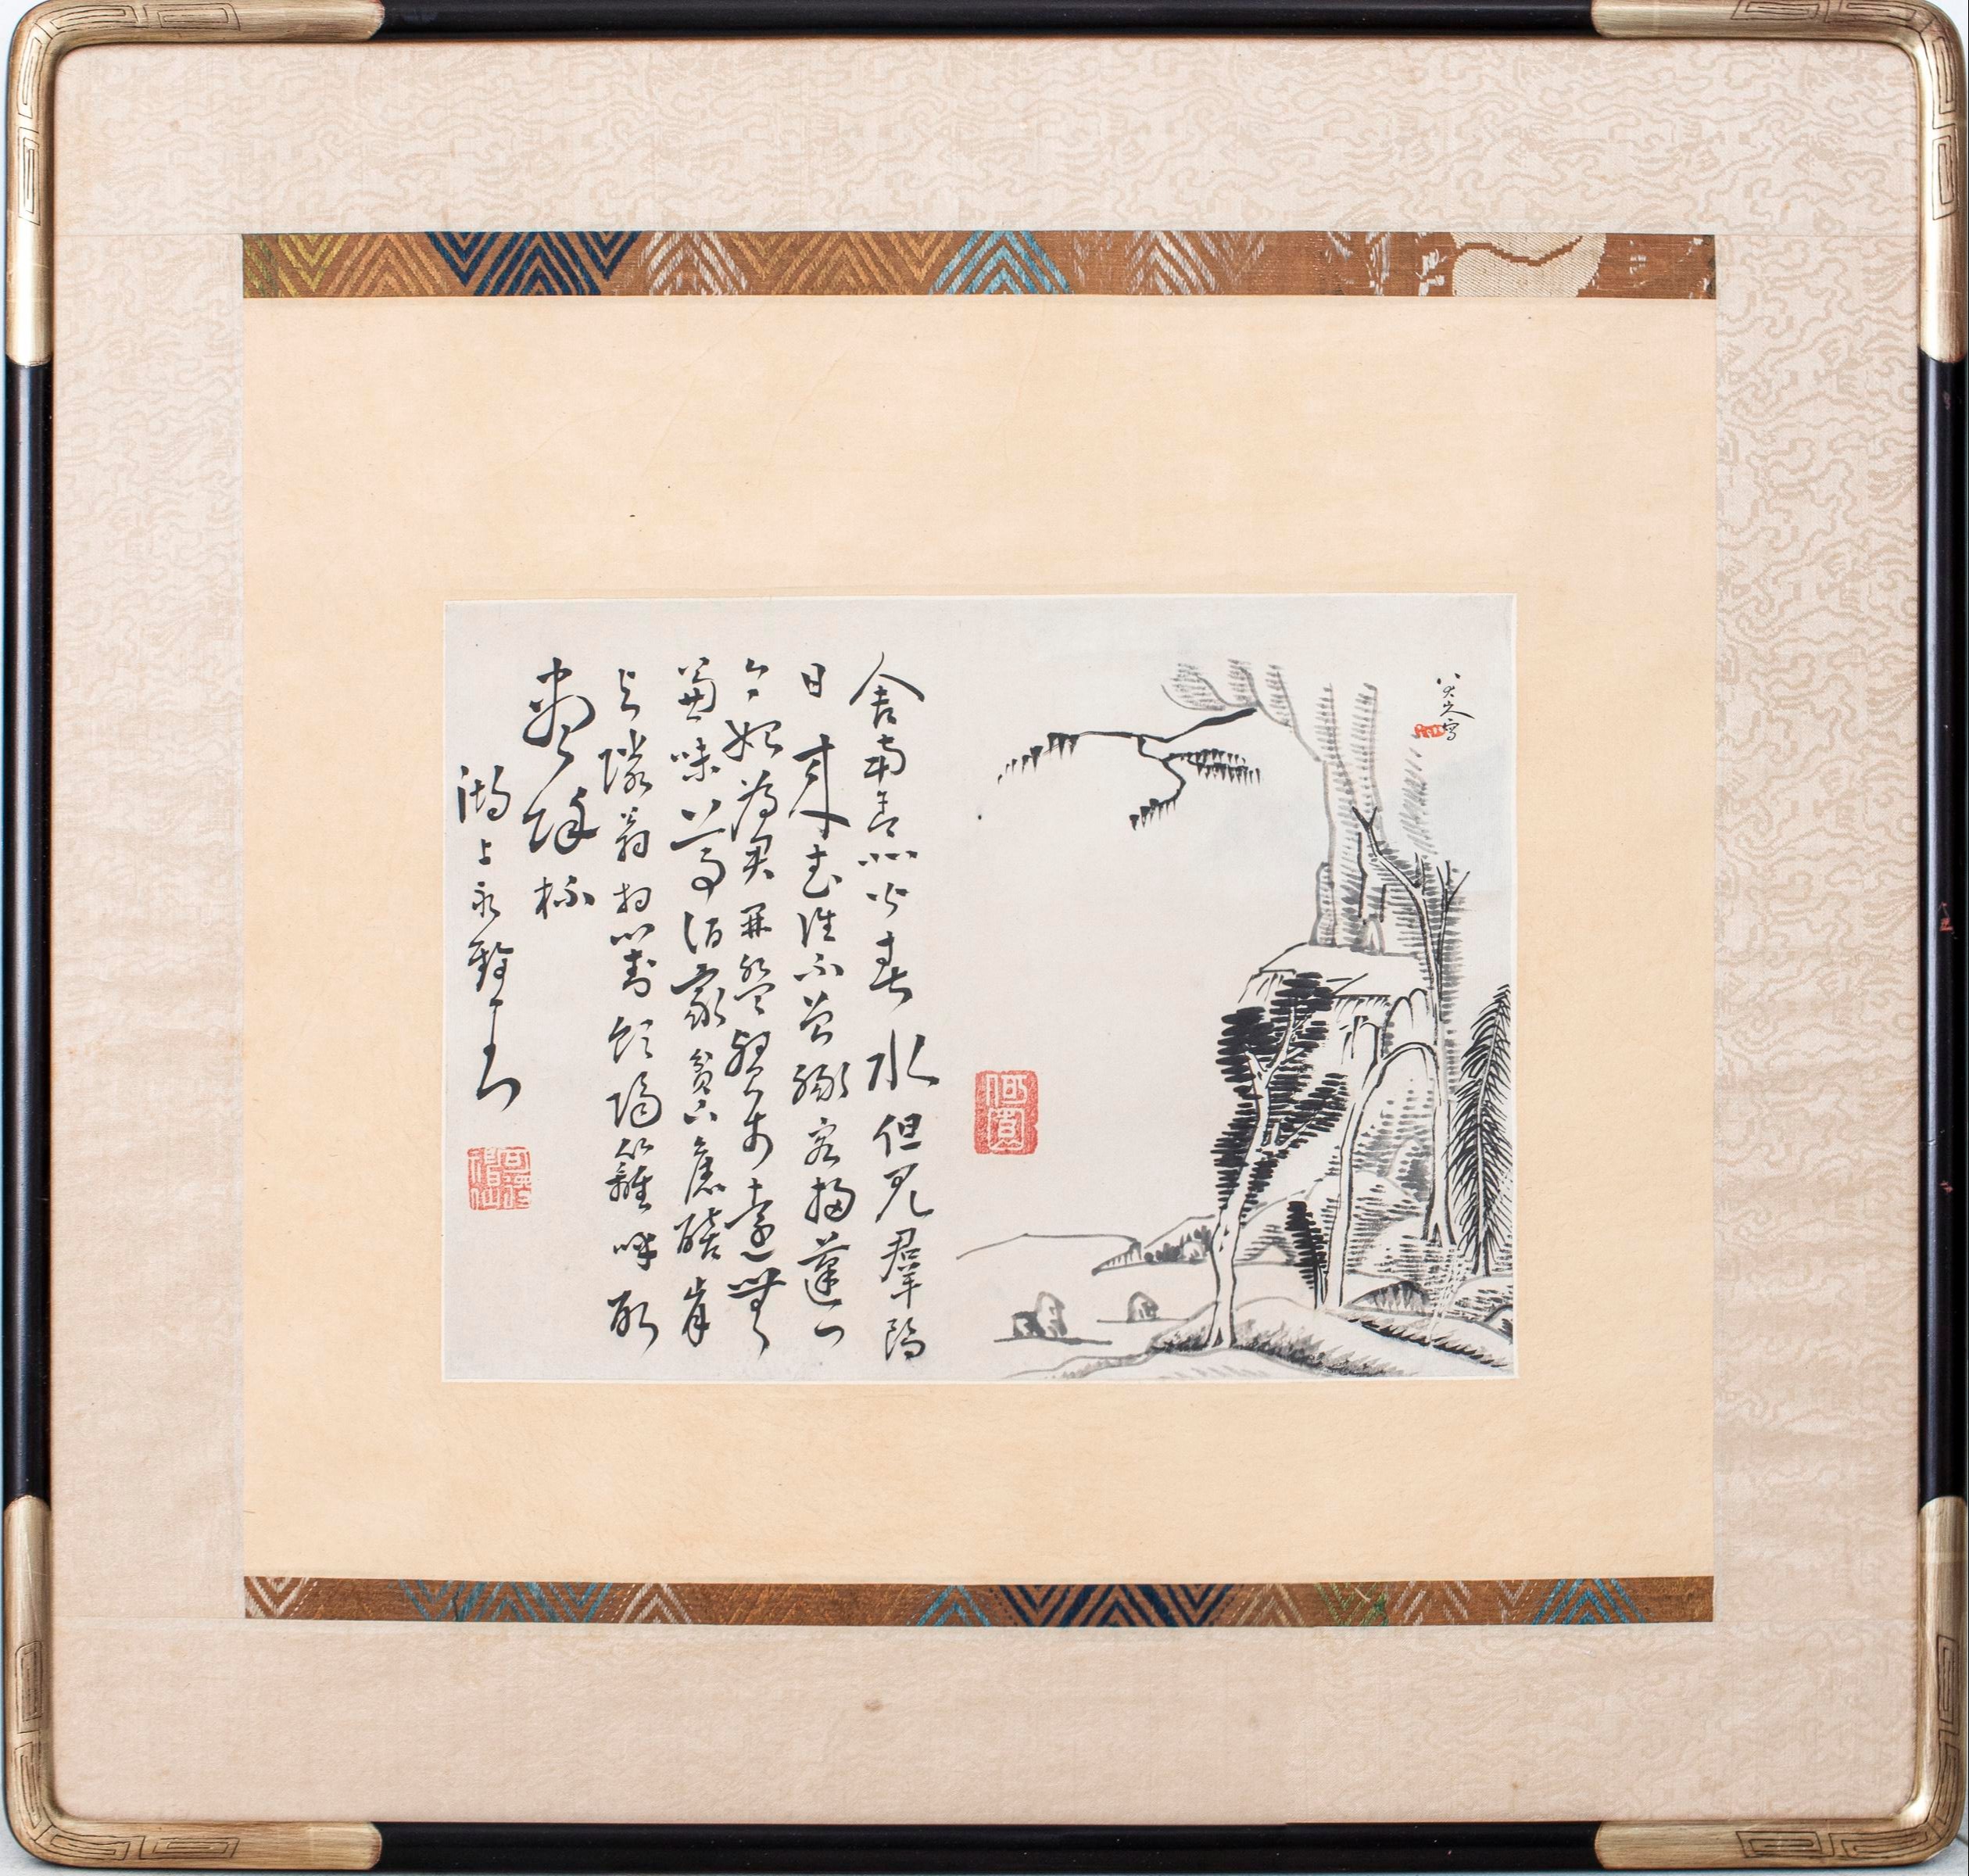 八大山人寫
舍南舍北皆春水但見羣鷗
日來花徑不曾緣客掃蓬門
今始為君開盤飧市遠無
兼味樽酒家貧只舊醅肯
與隣翁相對飲隔籬呼取
盡餘杯
湖上永